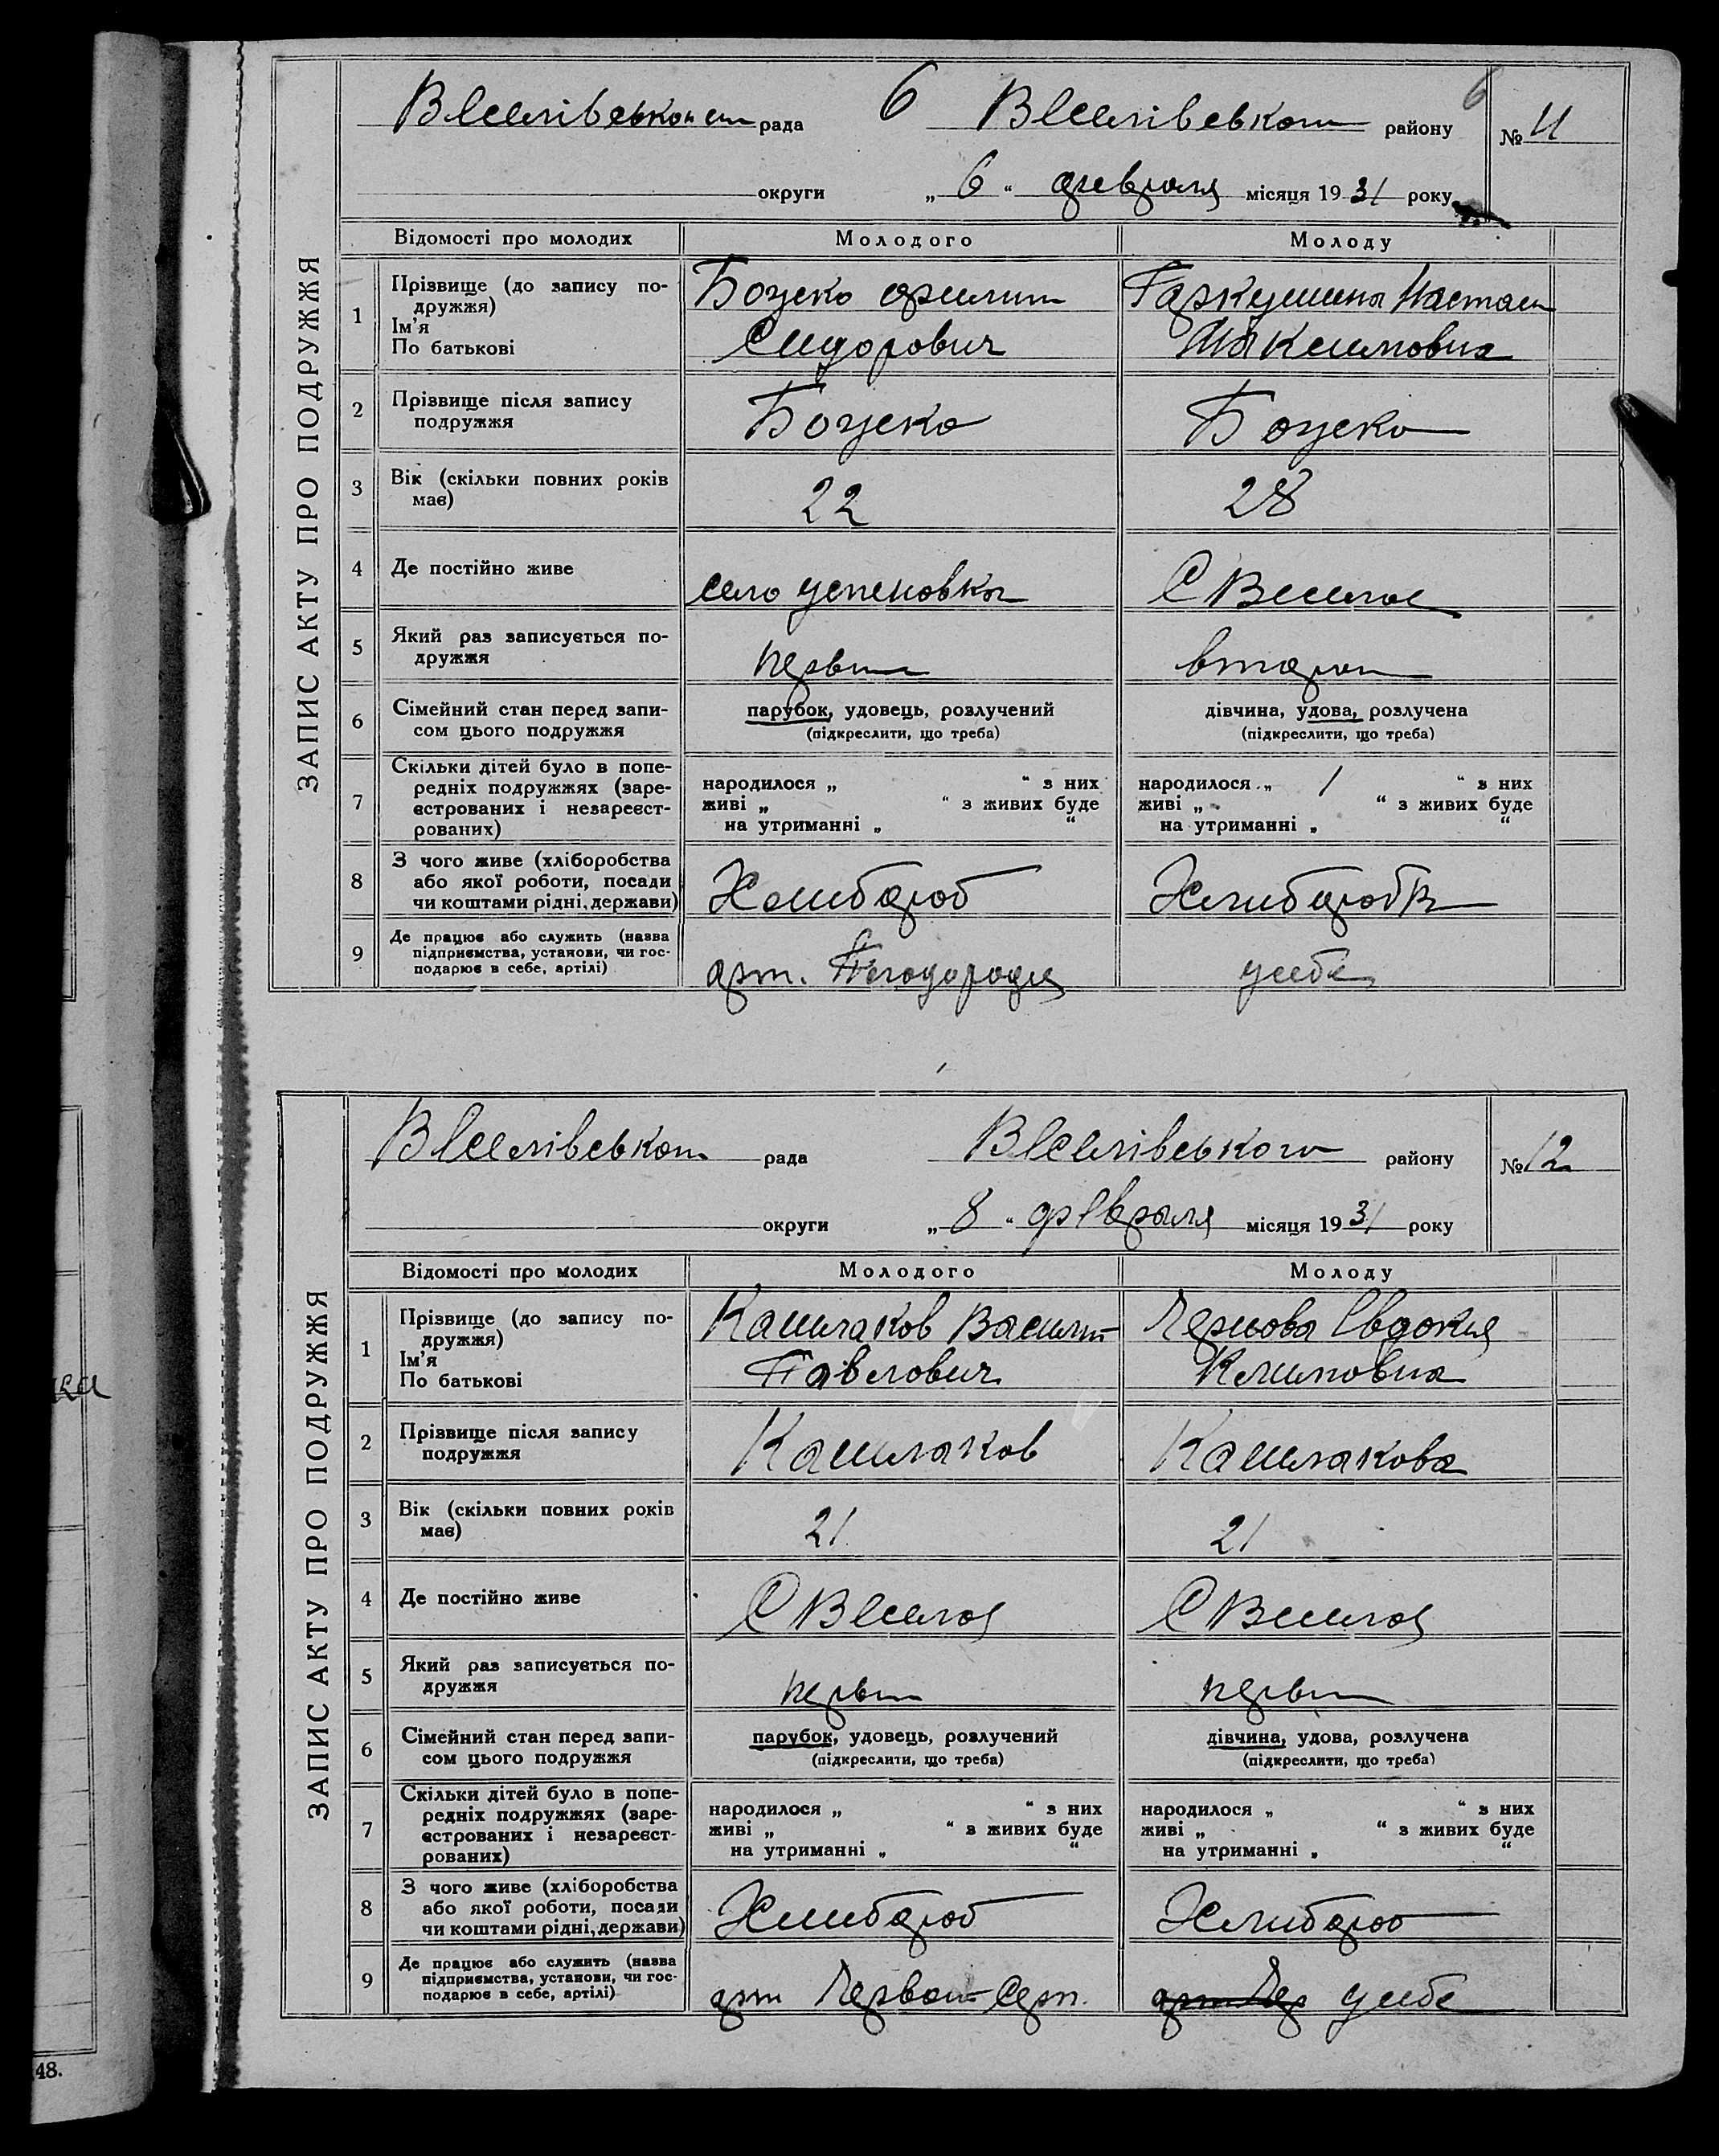 ЗАПИС АКТУ ПРО ПОДРУЖЖЯ
рада 6 Веселівського району 6 № 11
округи „ 6 “ февраля місяця 19 31 року
Відомості про молодих Молодого Молоду
1 Прізвище (до запису подружжя)
Ім'я
По батькові
Филип
Сидорович
Гаркушина Настасия
Максимовна
2 Прізвище після запису
подружжя
3 Вік (скільки повних років
має)
22 28
4 Де постійно живе село Успеновка С Веселое
5 Який раз записується по-
дружжя
первий второй
6 Сімейний стан перед запи-
сом цього подружжя
парубок, удовець, розлучений
(підкреслити, що треба)
дівчина, удова, розлучена
(підкреслити, що треба)
7 Скільки дітей було в попе-
редніх подружжях (заре-
єстрованих і незареєст-
рованих)
народилося „ “ з них
живі „ “ з живих буде
на утриманні „ “
народилося „ 1 “ з них
живі „ “ з живих буде
на утриманні „ “
8 З чого живе (хліборобства
або якої роботи, посади
чи коштами рідні, держави)
Хлибороб Хлиборобка
9 Де працює або служить (назва
підприємства, установи, чи гос-
подарює в себе, артілі)
арт. у себе
ЗАПИС АКТУ ПРО ПОДРУЖЖЯ
рада Веселівського району № 12
округи „ 8 “ февраля місяця 19 31 року
Відомості про молодих Молодого Молоду
1 Прізвище (до запису по-
дружжя)
Ім'я
По батькові
Кашлаков Василий
Павлович
Чернова Евдокия
Климовна
2 Прізвище після запису
подружжя
Кашлаков Кашлакова
3 Вік (скільки повних років
має)
21 21
4 Де постійно живе С Веселое С Веселое
5 Який раз записується по-
дружжя
первий первий
6 Сімейний стан перед запи-
сом цього подружжя
парубок, удовець, розлучений
(підкреслити, що треба)
дівчина, удова, розлучена
(підкреслити, що треба)
7 Скільки дітей було в попе-
редніх подружжях (заре-
єстрованих і незареєст-
рованих)
народилося „ “ з них
живі „ “ з живих буде
на утриманні „ “
народилося „ “ з них
живі „ “ з живих буде
на утриманні „ “
8 З чого живе (хліборобства
або якої роботи, посади
чи коштами рідні, держави)
Хлибороб Хлибороб
9 Де працює або служить (назва
підприємства, установи, чи гос-
подарює в себе, артілі)
арт Серп. у себе
48.